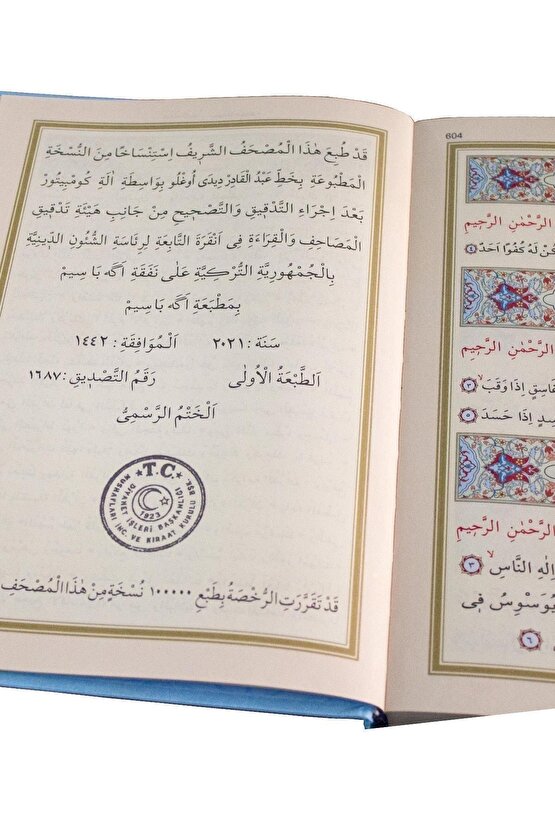 604
الرَّحْمٰنِ الرَّحِيمِ
كُنْ لَهُ كُفُوًا اَحَدٌ ٤
الرَّحْمٰنِ الرَّحِيمِ
غَاسِقٍ اِذَا وَقَبَ ٣
سِدٍ اِذَا حَسَدَ ٥
الرَّحْمٰنِ الرَّحِيمِ
اِلٰهِ النَّاسِ ٣
يُوَسْوِسُ فِي
٦
قَدْ طُبِعَ هٰذَا الْمُصْحَفُ الشَّرِيفُ اِسْتِنْسَاخًا مِنَ النُّسْخَةِ
الْمَطْبُوعَةِ بِخَطِّ عَبْدُ الْقَادِرْ دِيدَى أُوغْلُو بِوَاسِطَةِ اٰلَةِ كُومْبِيتُورْ
بَعْدَ اِجْرَاءِ التَّدْقِيقِ وَالتَّصْحِيحِ مِنْ جَانِبِ هَيْئَةِ تَدْقِيقِ
الْمَصَاحِفِ وَالْقِرَاءَةِ فِى اَنْقَرَةَ التَّابِعَةِ لِرِئَاسَةِ الشُّئُونِ الدِّينِيَّةِ
بِالْجُمْهُورِيَّةِ التُّرْكِيَّةِ عَلٰى نَفَقَةِ اَگَه بَاسِيمْ
بِمَطْبَعَةِ اَگَه بَاسِيمْ
سَنَة: ٢٠٢١ اَلْمُوَافِقَةِ: ١٤٤٢
اَلطَّبْعَةُ الْاُولٰى رَقَمُ التَّصْدِيقِ: ١٦٨٧
اَلْخَتْمُ الرَّسْمِىُّ
T.C.
DİYANET İŞLERİ BAŞKANLIĞI
MUSHAFLARI İNC. VE KIRAAT KURULU BŞK.
1923
قَدْ تَقَرَّرَتِ الرُّخْصَةُ بِطَبْعِ ١٠٠٠٠٠ نُسْخَةٍ مِنْ هٰذَا الْمُصْحَفِ